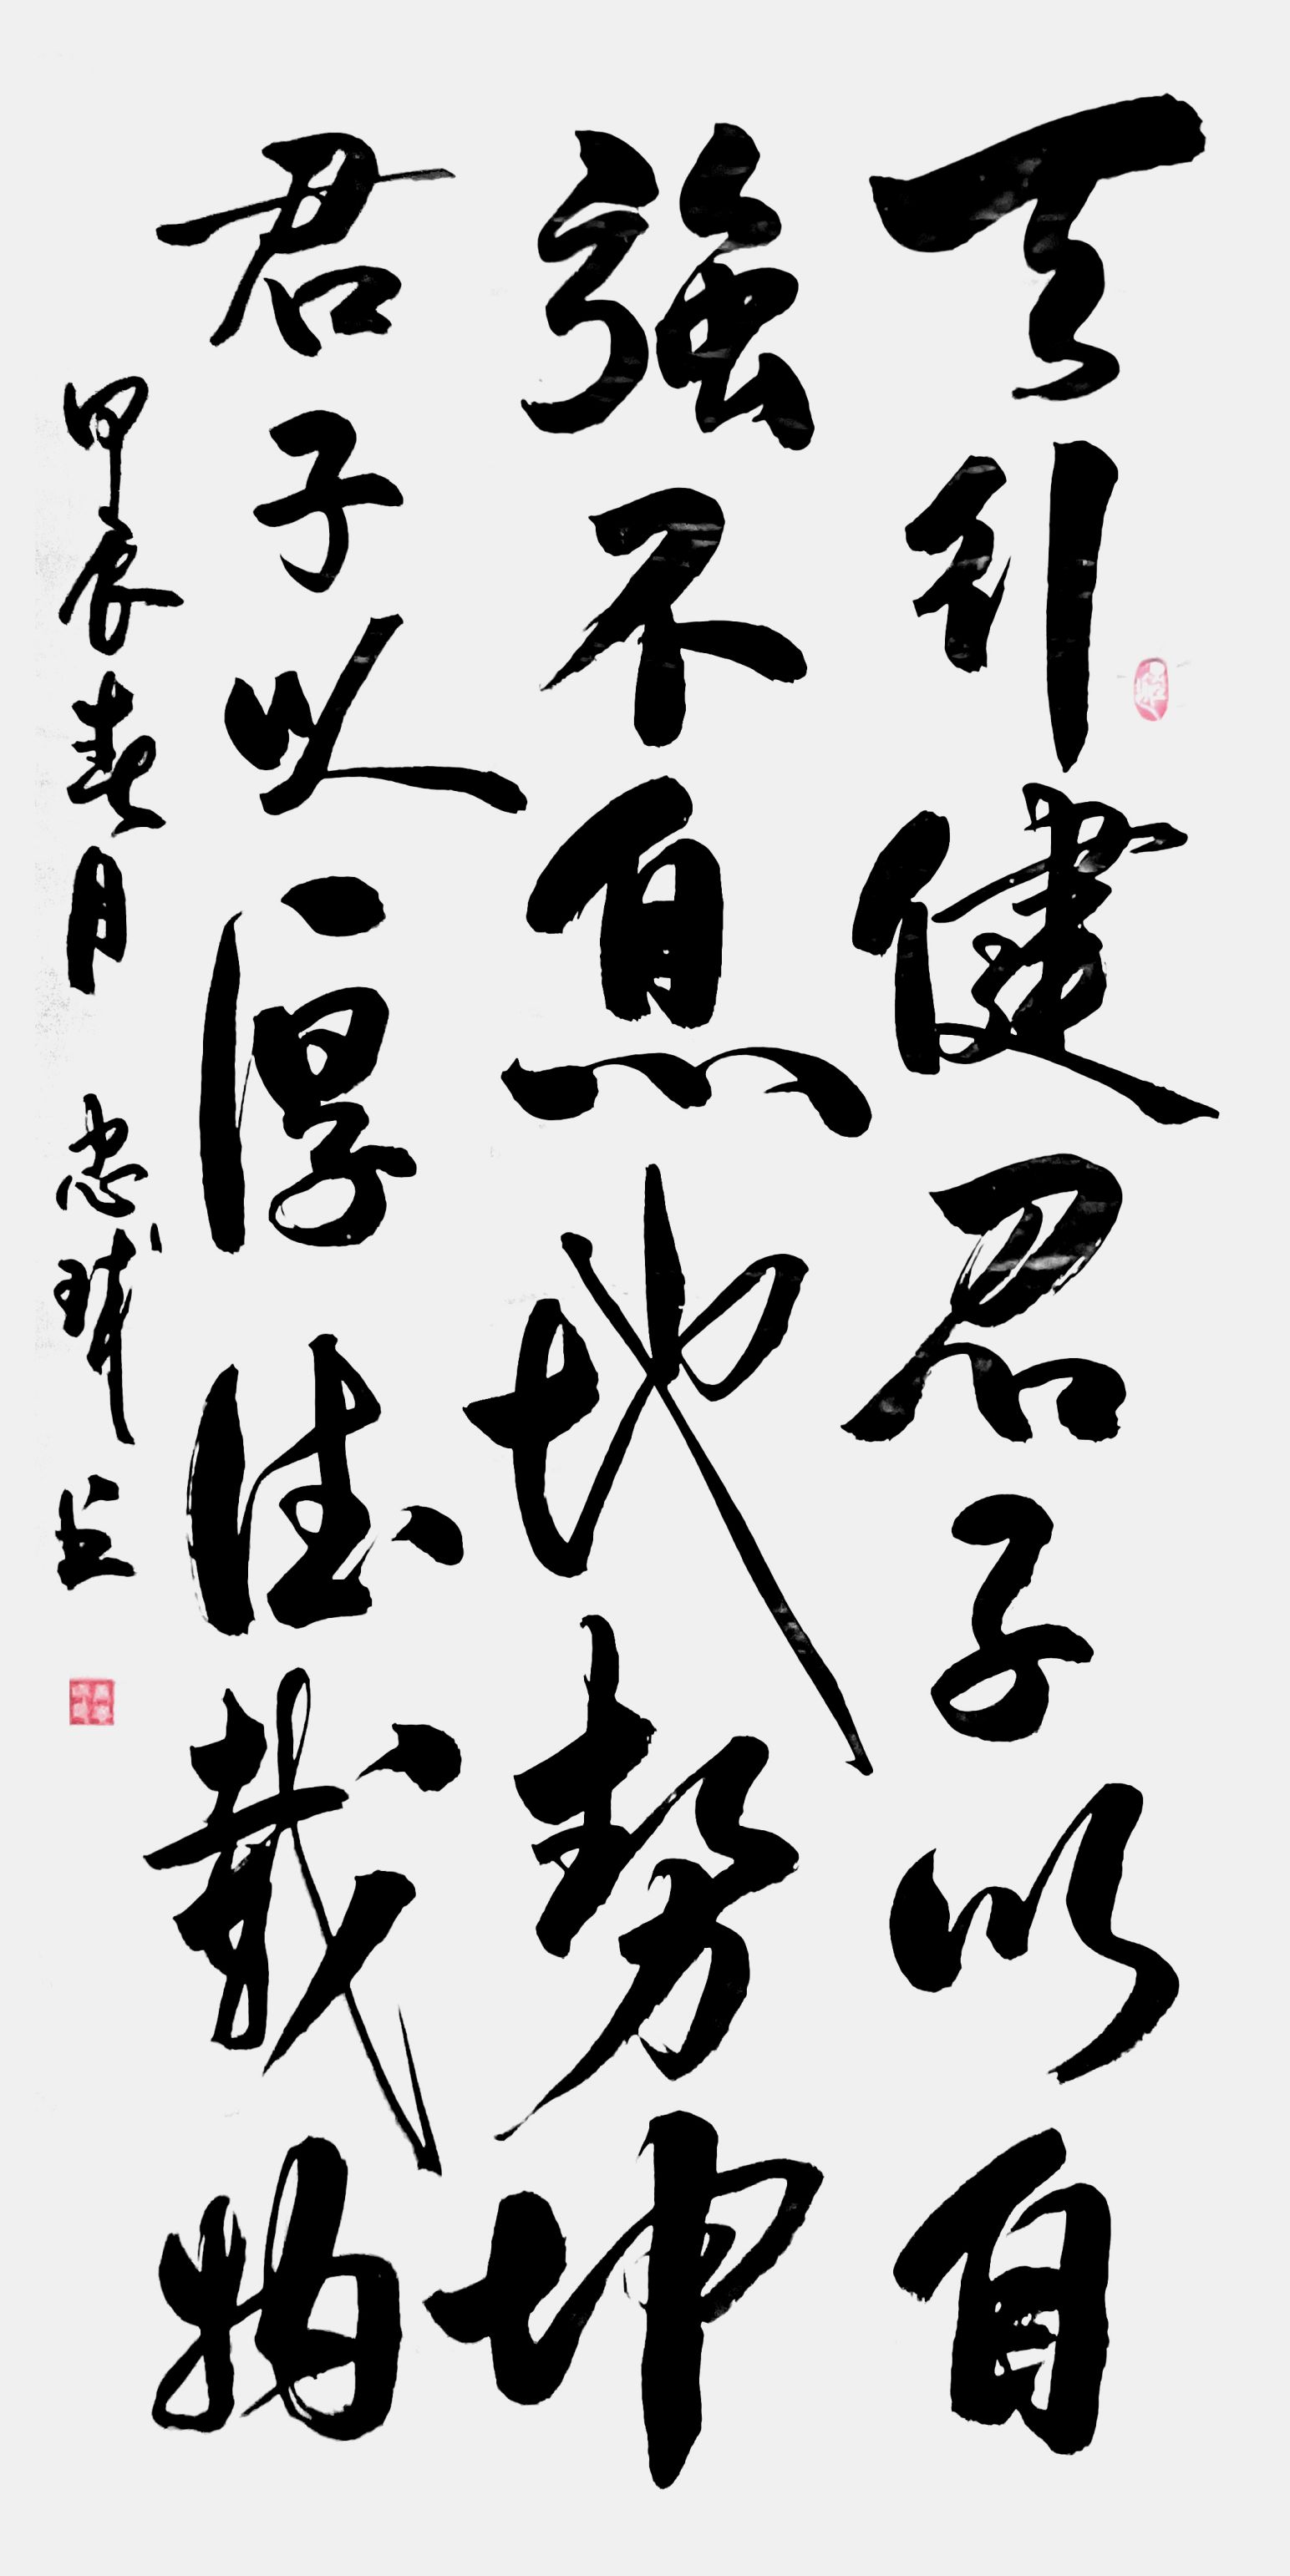 天行健君子以自
強不息地势坤
君子以厚德載物
甲辰春月 忠